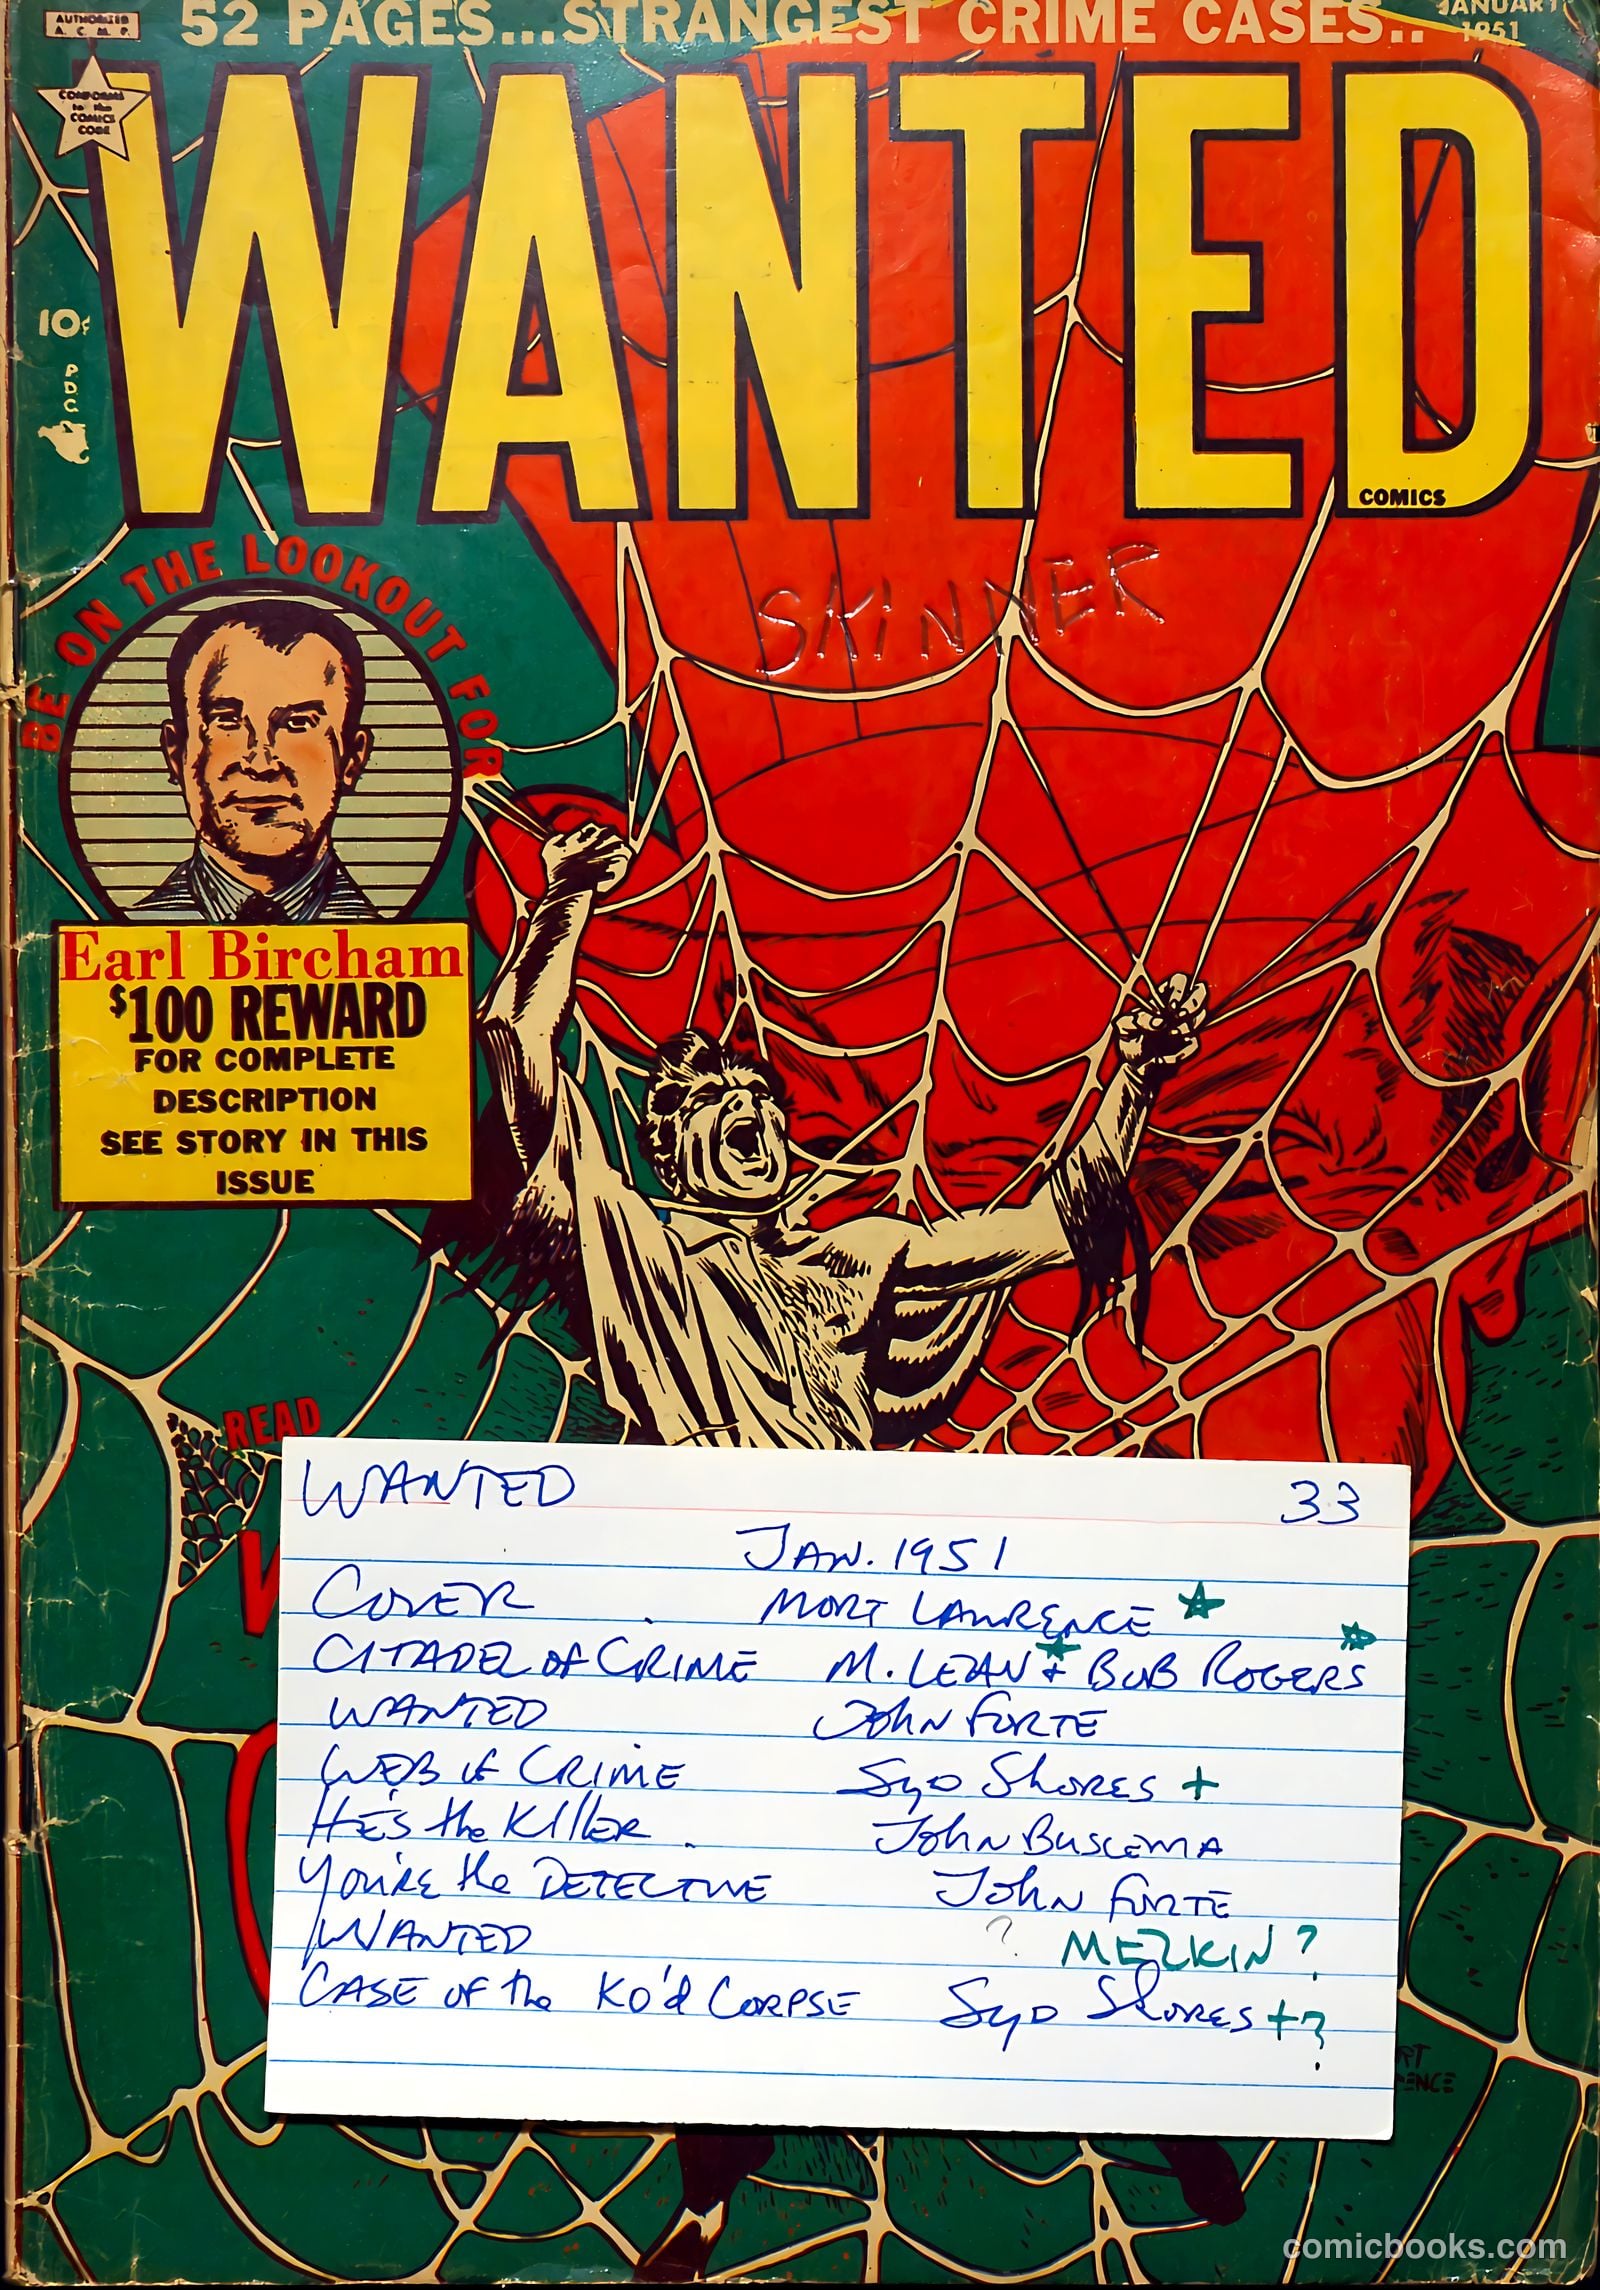 AUTHORIZED
A.C.M.P.
52 PAGES...STRANGEST CRIME CASES..
JANUARY
1951
CONFORMS
to the
COMICS
CODE
WANTED
COMICS
10¢
PDC
SKINNER
BE ON THE LOOKOUT FOR
Earl Bircham
$100 REWARD
FOR COMPLETE
DESCRIPTION
SEE STORY IN THIS
ISSUE
READ
WANTED 33
JAN. 1951
COVER . MORT LAWRENCE ☆
CITADEL OF CRIME M. LEAV & BOB ROGERS
WANTED JOHN FORTE
WEB of CRIME SYD SHORES +
HE'S the KILLER . JOHN BUSCEMA
YOU'RE the DETECTIVE JOHN FORTE
WANTED ? MEZKIN ?
CASE OF the KO'd CORPSE SYD SHORES +?
comicbooks.com